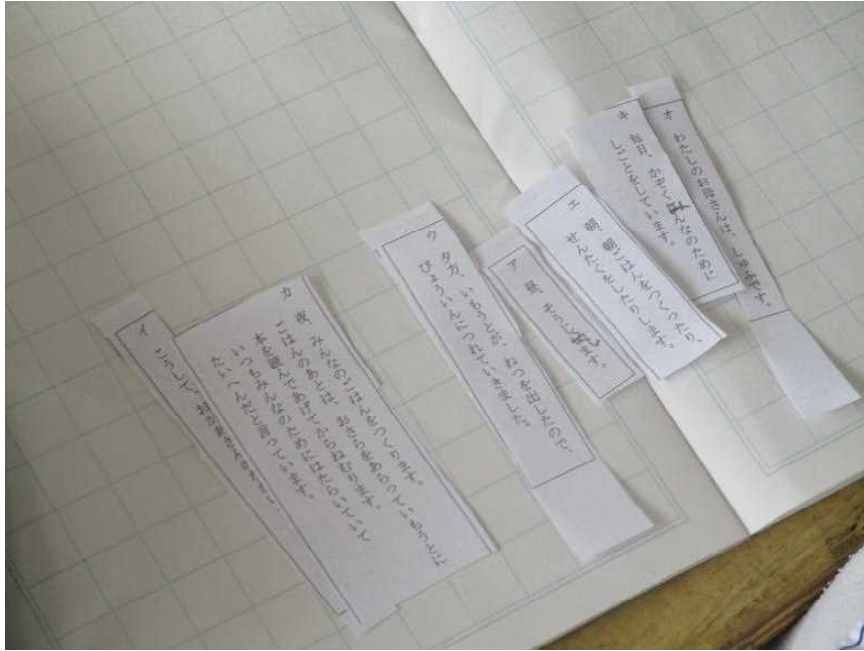 オ わたしのお母さんは、しゅふです。
キ 毎日、かぞくみんなのために
しごとをしています。
エ 朝、朝ごはんをつくったり、
せんたくをしたりします。
ア 昼、そうじ ます。
ウ 夕方、いもうとが、ねつを出したので、
びょういんにつれていきました。
カ 夜、みんなのごはんをつくります。
ごはんのあとは、おさらをあらっていもうとに
本を読んであげてからねむります。
いつもみんなのためにはたらいていて
たいへんだと思っています。
イ こうして、